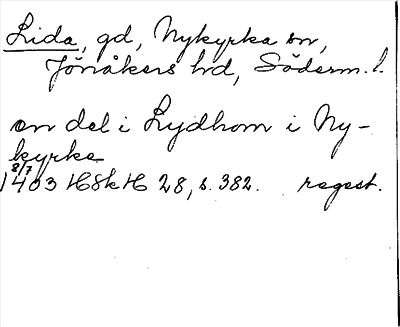 Lida, gd, Nykyrka sn,
Jönåkers hd, Söderm. l.
en del i Lydhom i Ny-
kyrka
8/7
1403 HSkH 28, s. 382. regest.